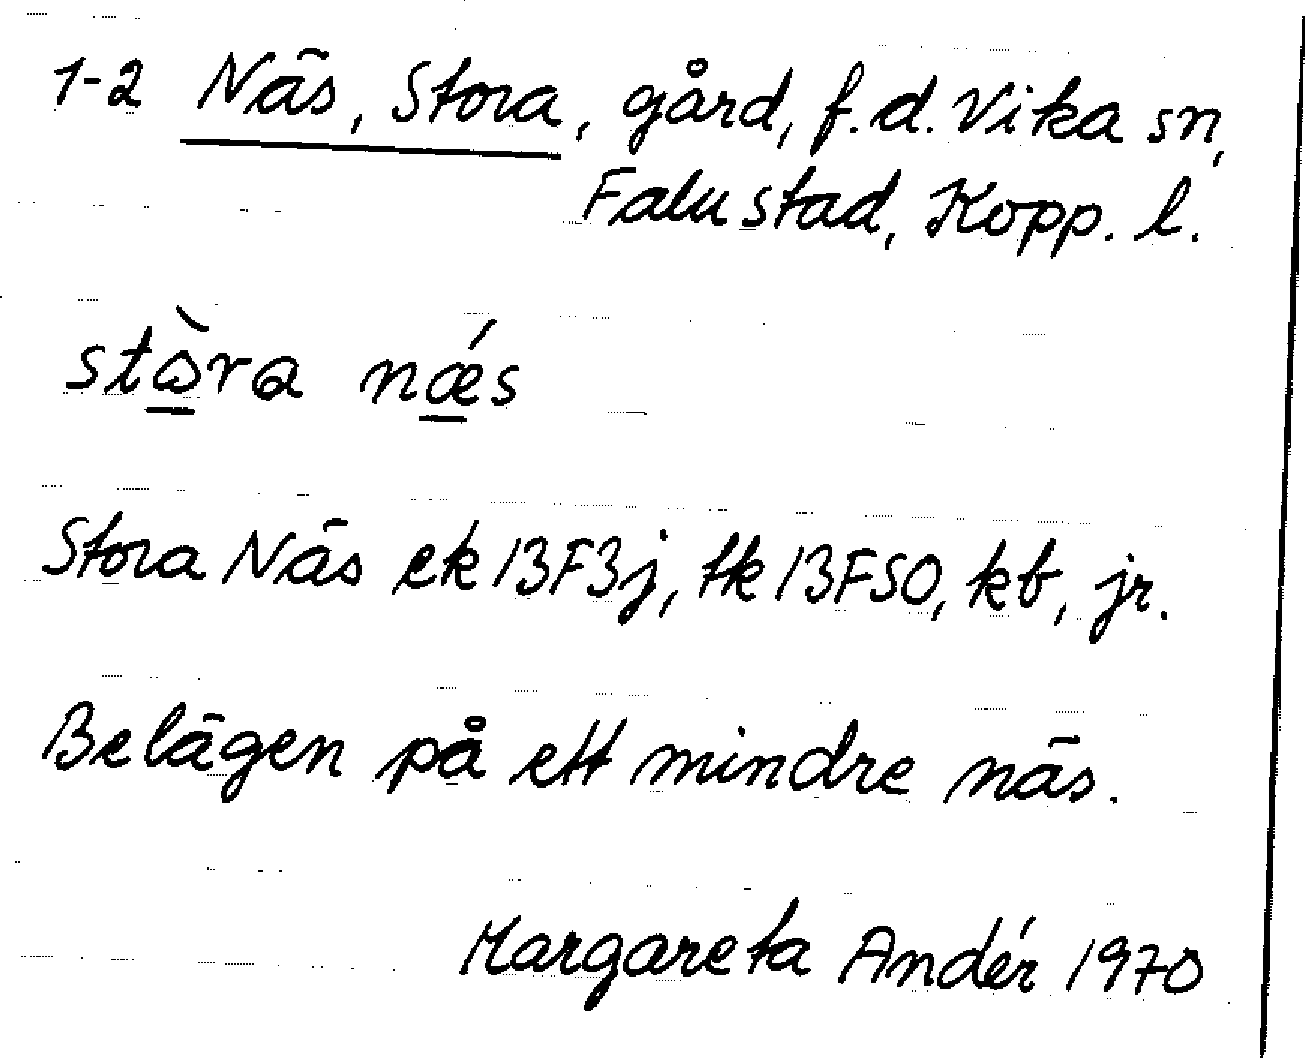 1-2 Näs, Stora, gård, f.d. Vika sn,
Falu stad, Kopp. l.
stɷ̀ra nǽs
Stora Näs ek 13F3j, tk 13FSO, kb, jr.
Belägen på ett mindre näs.
Margareta Andér 1970